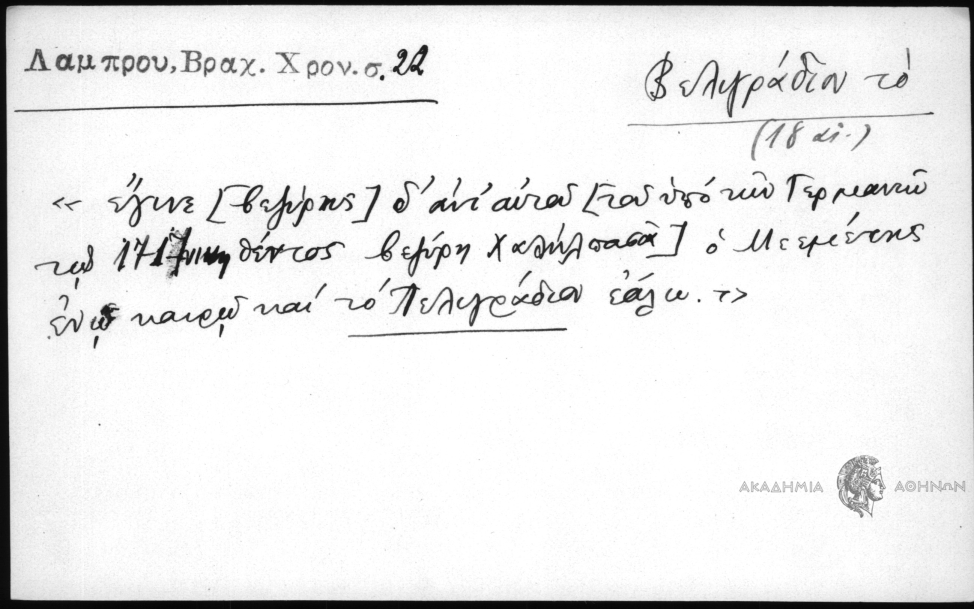 Λαμπρου, Βραχ. Χρον. σ. 22
Βελιγράδιον τὸ
(18 αἰ.)
« ἔγινε [βεζύρης] δ' ἀντ' αὐτοῦ [τοῦ ὑπό τῶν Γερμανῶν
τῷ 1717 νικηθέντος βεζύρη Χαλήλπασᾶ] ὁ Μεεμέτης
ἐν ᾧ καιρῷ καί τό Πελιγράδιον ἑάλω. »
ΑΚΑΔΗΜΙΑ ΑΘΗΝΩΝ